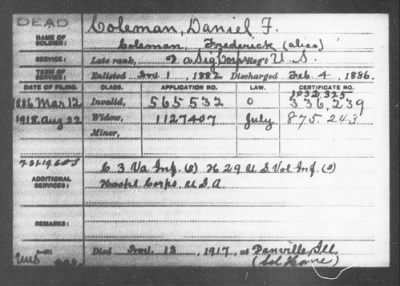 DEAD
NAME OF SOLDIER:
Coleman, Daniel F.
Coleman, Frederick (alias)
SERVICE:
Late rank, Sig Corps U. S.
TERM OF SERVICE:
Enlisted 1, 1882, Discharged Feb. 4, 1886.
DATE OF FILING. CLASS. APPLICATION NO. LAW. CERTIFICATE NO.
1032325
1886 Mar 12 Invalid, 565532 336,239
1918 Aug 22 Widow, 1127407 July 875,243
Minor,
ADDITIONAL SERVICES:
C 3 Va Inf. (s) H 29 U S Vol Inf. (s)
Hospl Corps. U.S.A.
REMARKS:
Died 13, 1917, at Danville, Ill.
(Sol Home)